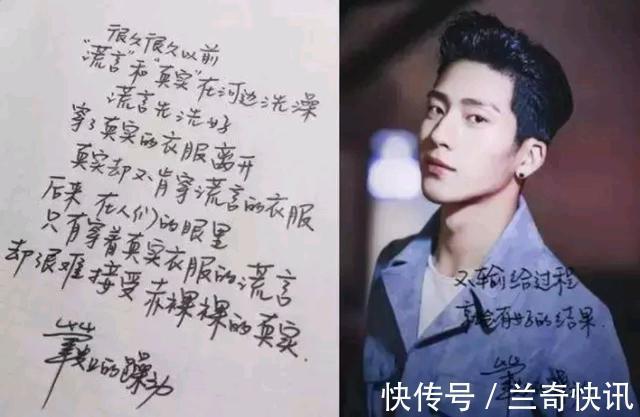 很久很久以前
“谎言”和“真实”在河边洗澡
谎言先洗好
穿了真实的衣服离开
真实却不肯穿谎言的衣服
后来 在人们的眼里
只有穿着真实衣服的谎言
却很难接受赤裸裸的真实.
的躁动
不输给过程
就会有好的结果.
快传号／兰奇快讯